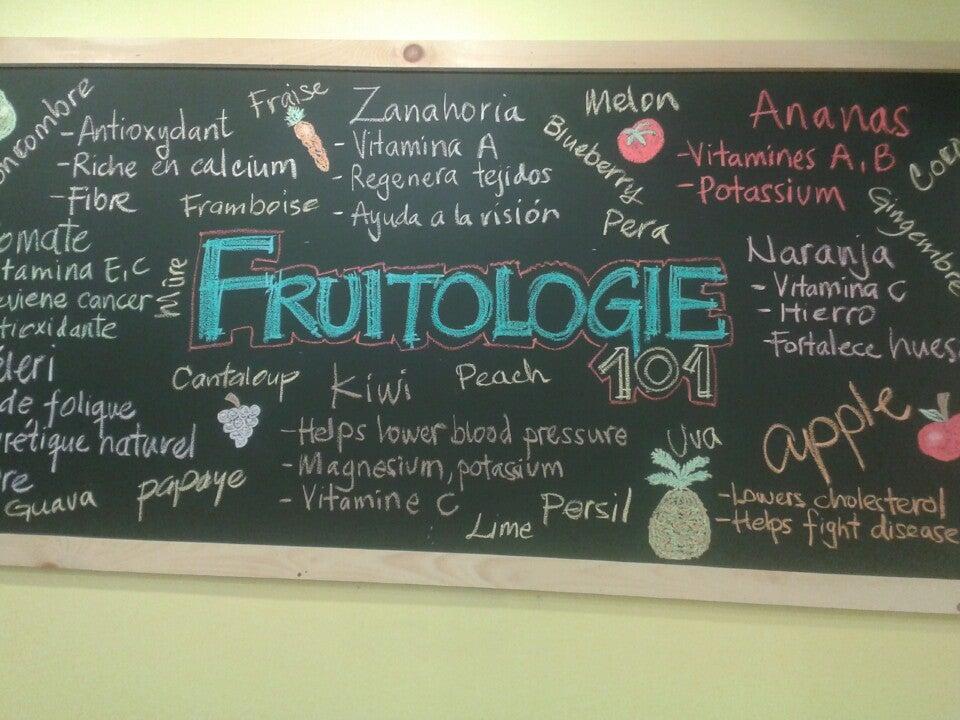 oncombre
- Antioxydant
- Riche en calcium
- Fibre
Fraise
Framboise
Zanahoria
- Vitamina A
- Regenera tejidos
- Ayuda a la visión
Melon
Blueberry
Pera
Ananas
- Vitamines A, B
- Potassium
Coco
Gingembre
omate
itamina E, C
eviene cancer
tioxidante
Mûre
FRUITOLOGIE
101
Naranja
- Vitamina C
- Hierro
- Fortalece hues
éleri
de folique
urétique naturel
bre
Guava
papaye
Cantaloup
Kiwi
- Helps lower blood pressure
- Magnesium, potassium
- Vitamine C
Peach
Lime
Persil
Uva
apple
- Lowers cholesterol
- Helps fight disease